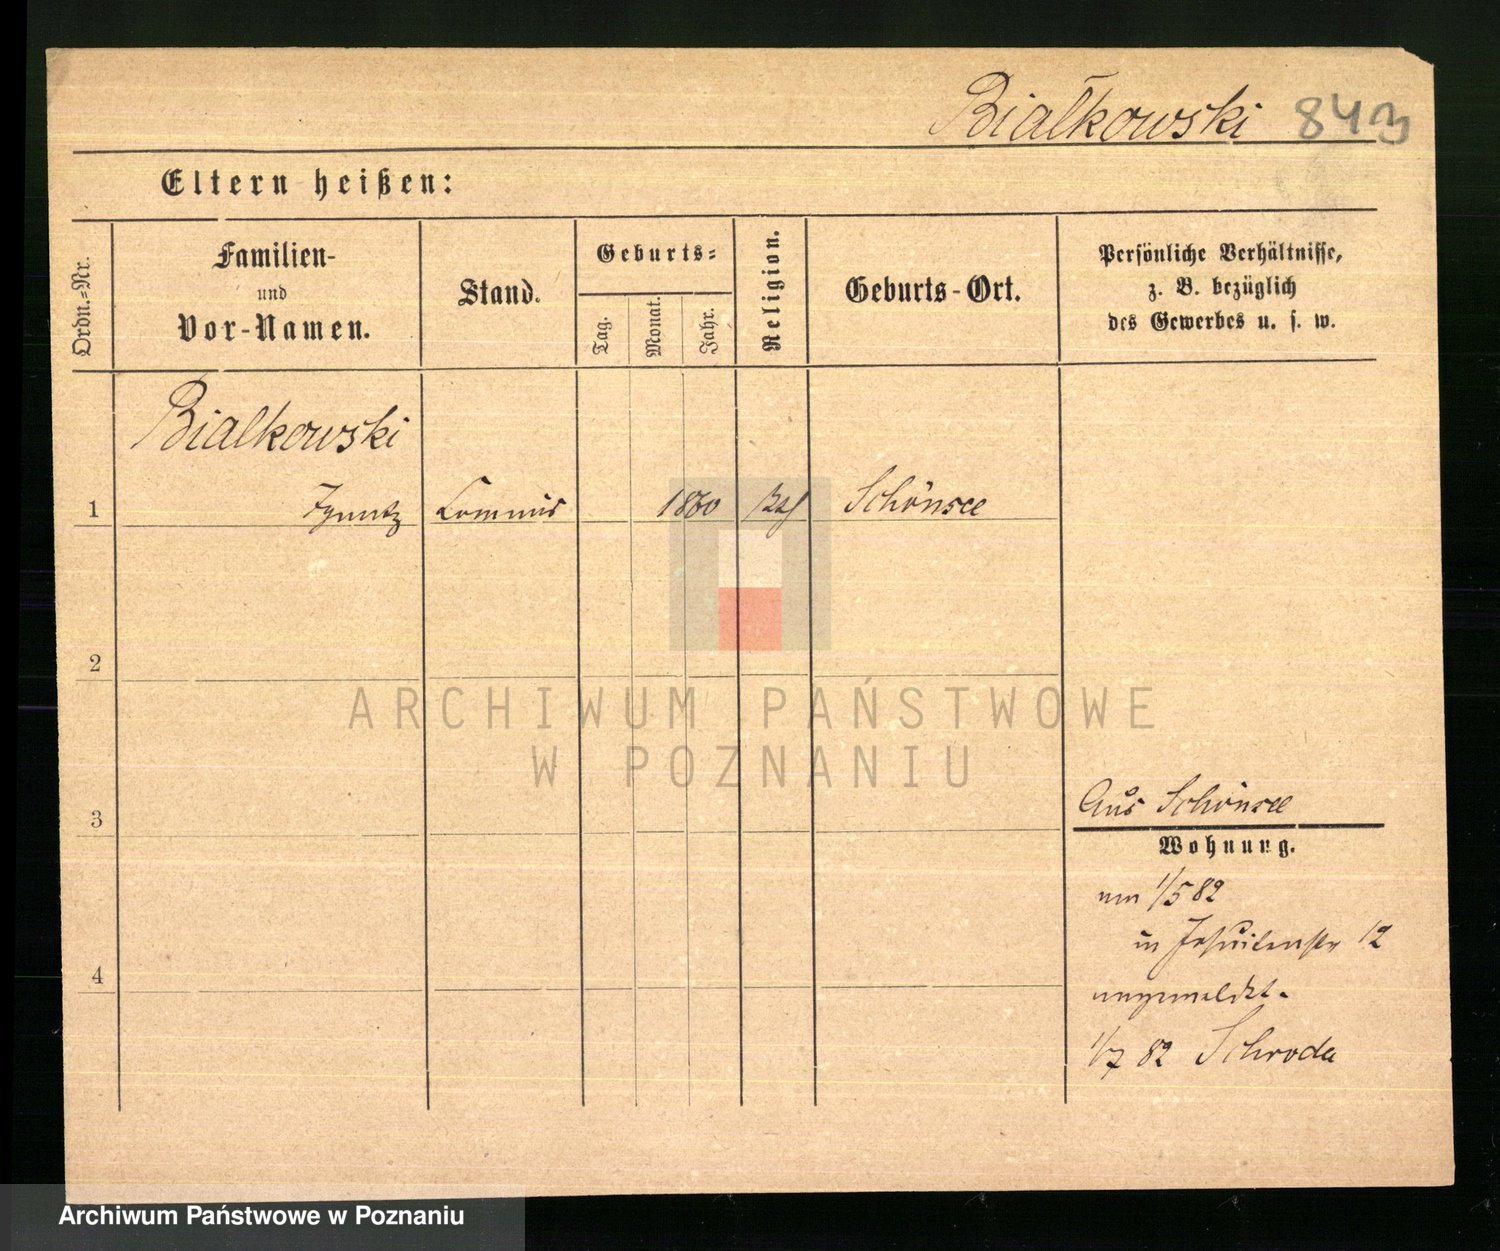 Białkowski 843
Eltern heißen:
Ordn.-Nr.
Familien-
und
Vor-Namen.
Stand.
Geburts-
Tag.
Monat.
Jahr.
Religion.
Geburts-Ort.
Persönliche Verhältnisse,
z. B. bezüglich
des Gewerbes u. s. w.
Bialkowski
1 Ignatz Commis 1860 Schönsee
2
ARCHIWUM PAŃSTWOWE
W POZNANIU
Aus Schönsee
3
Wohnung.
1/5 82
in Jesuitenstr 12
4
angemeldet.
1/7 82 Schroda
Archiwum Państwowe w Poznaniu